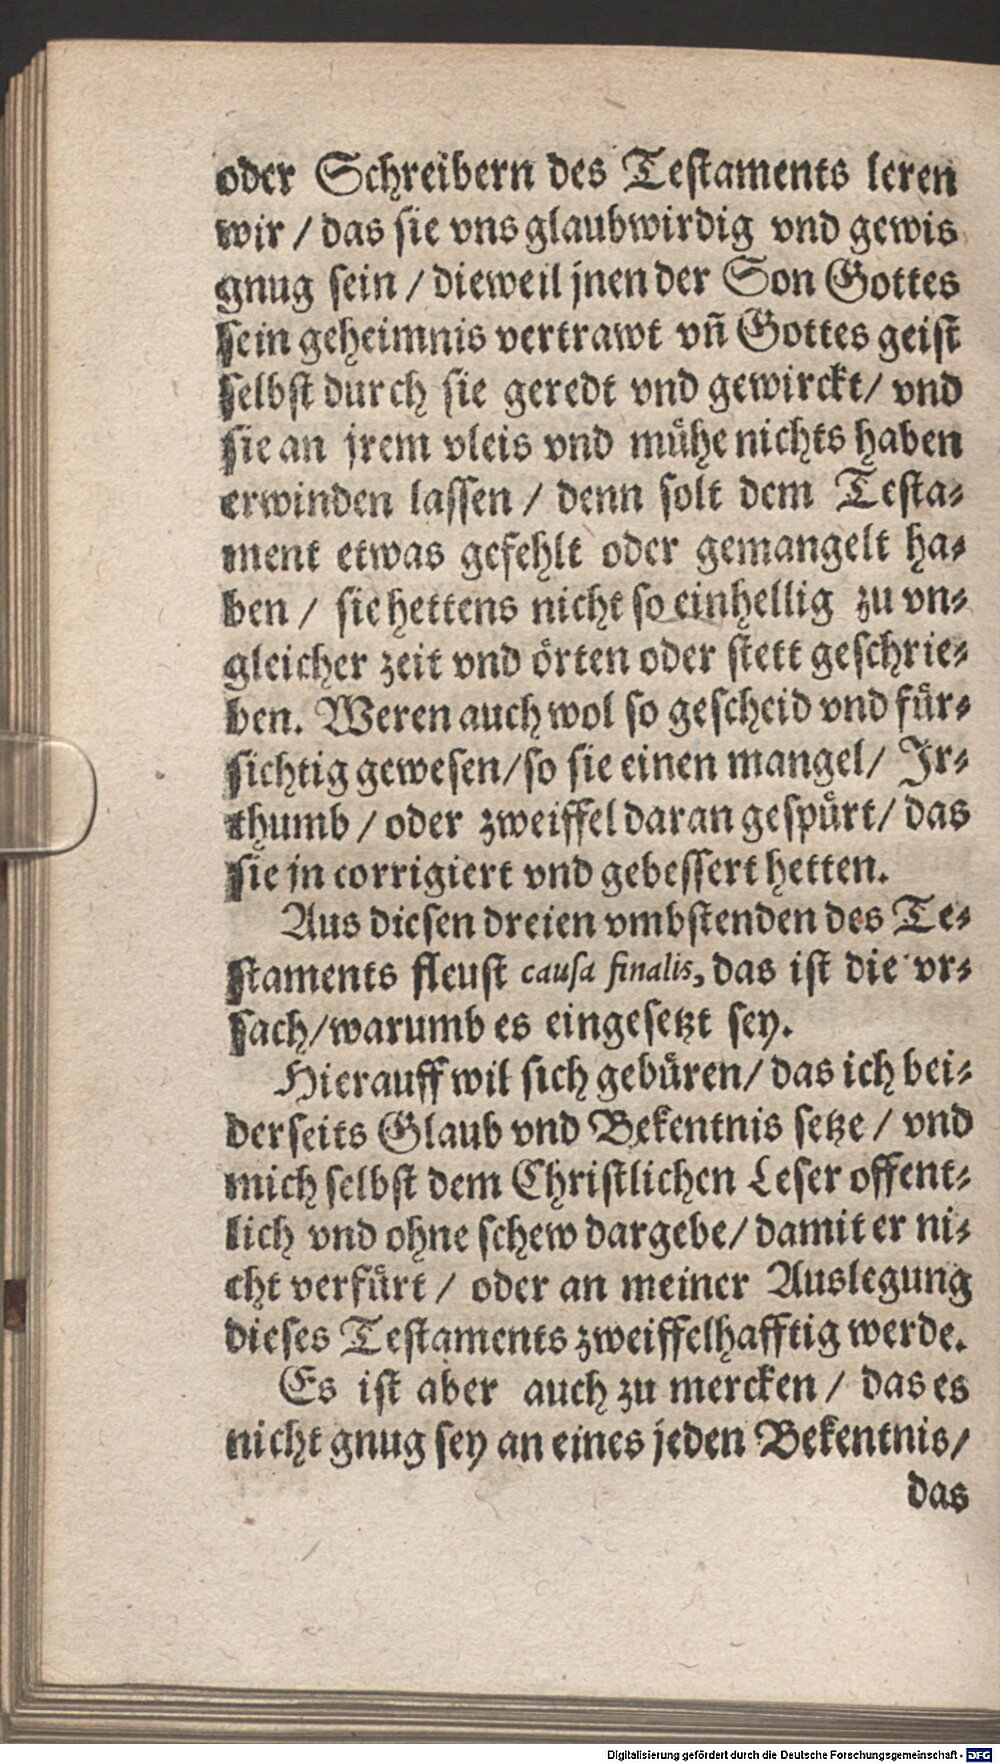 oder Schreibern des Testaments leren
wir / das sie vns glaubwirdig vnd gewis
gnug sein / dieweil jnen der Son Gottes
sein geheimnis vertrawt vn̄ Gottes geist
selbst durch sie geredt vnd gewirckt / vnd
sie an jrem vleis vnd mühe nichts haben
erwinden lassen / denn solt dem Testa-
ment etwas gefehlt oder gemangelt ha-
ben / sie hettens nicht so einhellig zu vn-
gleicher zeit vnd örten oder stett geschrie-
ben. Weren auch wol so gescheid vnd für-
sichtig gewesen / so sie einen mangel / Jr-
thumb / oder zweiffel daran gespürt / das
sie jn corrigiert vnd gebessert hetten.
Aus diesen dreien vmbstenden des Te-
staments fleust causa finalis, das ist die vr-
sach / warumb es eingesetzt sey.
Hierauff wil sich gebüren / das ich bei-
derseits Glaub vnd Bekentnis setze / vnd
mich selbst dem Christlichen Leser offent-
lich vnd ohne schew dargebe / damit er ni-
cht verfürt / oder an meiner Auslegung
dieses Testaments zweiffelhafftig werde.
Es ist aber auch zu mercken / das es
nicht gnug sey an eines jeden Bekentnis /
das
Digitalisierung gefördert durch die Deutsche Forschungsgemeinschaft - DFG